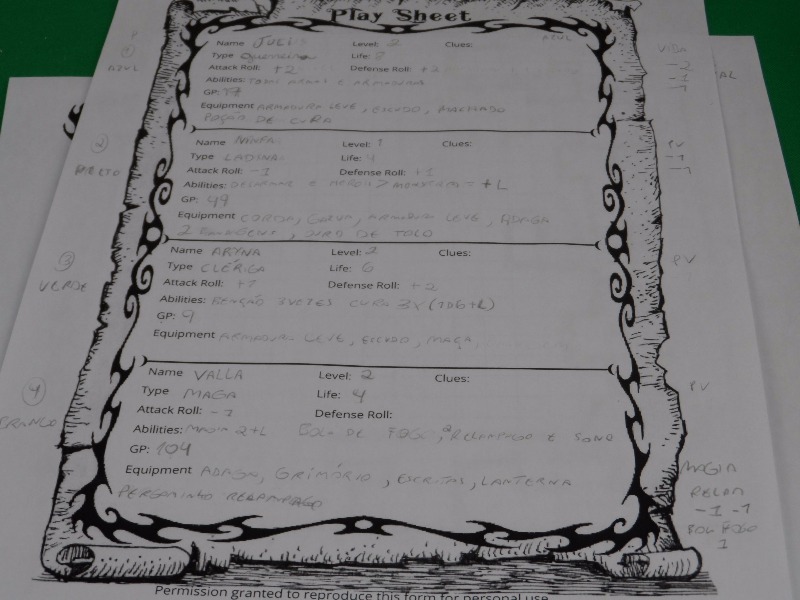 Play Sheet
Name JUELI Level: 2 Clues: AZUL
Type GUERREIRA Life: 8
Attack Roll: +2 Defense Roll: +2
Abilities: TODAS ARMAS E ARMADURAS
GP:
Equipment ARMADURA LEVE, ESCUDO, MACHADO
POÇÃO DE CURA
Name Level: 1 Clues:
Type LADINA Life: 4
Attack Roll: -1 Defense Roll: +1
Abilities: DESARMAR E +L
GP: 49
Equipment CORDA, ARMADURA LEVE, ADAGA
2 , OURO DE TOLO
Name ARYNA Level: 2 Clues:
Type CLÉRIGA Life: 6
Attack Roll: +1 Defense Roll: +2
Abilities: BENÇÃO 3VEZES CURA 3X (1D6+L)
GP: 9
Equipment ARMADURA LEVE, ESCUDO, MAÇA,
Name VALLA Level: 2 Clues:
Type MAGA Life: 4
Attack Roll: -1 Defense Roll:
Abilities: MAGIA 2+L BOLA DE FOGO, RELAMPAGO E SONO
GP: 104
Equipment ADAGA, GRIMÓRIO, ESCRITAS, LANTERNA
PERGAMINHO RELAMPAGO
P
1
AZUL
2
PRETO
3
VERDE
4
BRANCO
VIDA
-2
-1
-1
PV
-1
-1
PV
PV
MAGIA
RELAM
-1 -1
BOL FOGO
1
Permission granted to reproduce this form for personal use